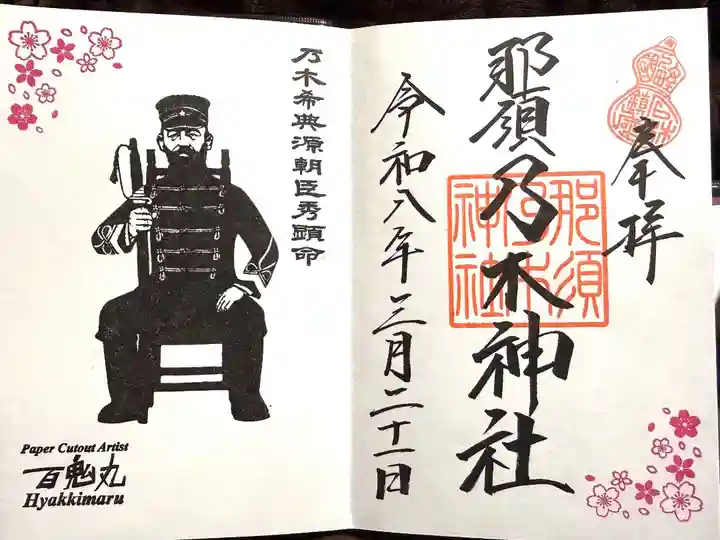 奉拝
那須乃木神社
那須
乃木
神社
令和八年三月二十一日
乃木希典源朝臣秀顕命
Paper Cutout Artist
百鬼丸
Hyakkimaru